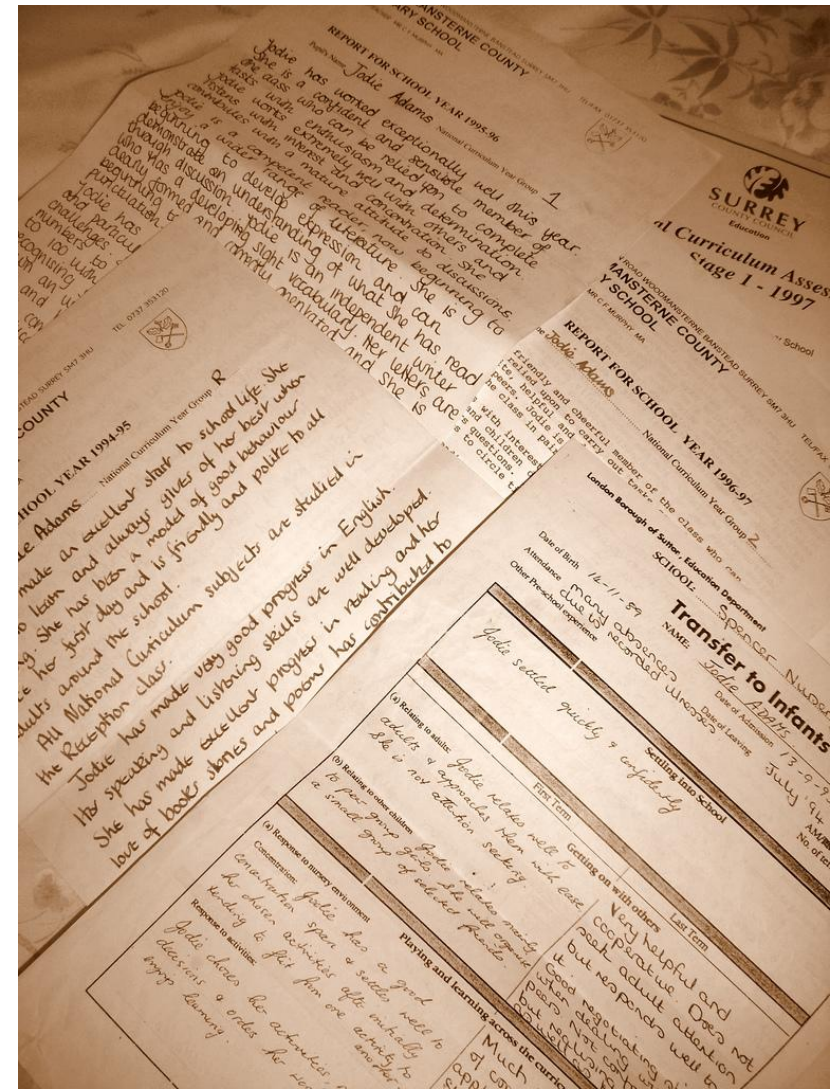 MANSTERNE COUNTY
ARY SCHOOL
REPORT FOR SCHOOL YEAR 1995-96
Pupil's Name Jodie Adams
National Curriculum Year Group 1
Jodie has worked exceptionally well this year.
She is a confident and sensible member of
the class who can be relied upon to complete
tasks with enthusiasm and determination
Jodie works extremely well with others and
listens with interest and concentration. She
contributes with a mature attitude to discussions.
Jodie is a competent reader now beginning to
enjoy a wider range of literature. She is
beginning to develop expression and can
demonstrate an understanding of what she has read
through discussion. Jodie is an independent writer
who has a developing sight vocabulary. Her letters are
clearly formed and correctly
beginning to
punctuation
motivated and she is
Jodie has
and particul
challenges.
numbers to
to 100 with
recognising
SURREY
COUNTY COUNCIL
Education
al Curriculum Asses
Stage 1 - 1997
School
ROAD WOODMANSTERNE BANSTEAD SURREY SM7 3HU
MANSTERNE COUNTY
Y SCHOOL
MR C F MURPHY MA
REPORT FOR SCHOOL YEAR 1996-97
Jodie Adams
National Curriculum Year Group 2
friendly and cheerful member of the class who can
relied upon to carry out task
te, helpful and
peers. Jodie is
he class in pair
with interest
and children
s questions.
s to circle t
TEL 0737 353120
STEAD SURREY SM7 3HU
COUNTY
HOOL YEAR 1994-95
ie Adams
National Curriculum Year Group R
made an excellent start to school life. She
to learn and always gives of her best when
ng. She has been a model of good behaviour
ce her first day and is friendly and polite to all
adults around the school.
All National Curriculum subjects are studied in
the Reception class.
Jodie has made very good progress in English.
Her speaking and listening skills are well developed.
She has made excellent progress in reading and her
love of books stories and poems has contributed to
London Borough of Sutton, Education Department
SCHOOL: Spencer Nurse
Transfer to Infants
NAME: Jodie ADAMS
Date of Birth 14-11-89
Date of Admission 13-9-9
Attendance many absences
due to recorded illnesses
Date of Leaving July '94
Other Pre-school experience
AM/
No. of te
Settling into School
Jodie settled quickly & confidently
First Term
Last Term
Getting on with others
(a) Relating to adults: Jodie relates well to
adults & approaches them with ease
She is not attention seeking.
(b) Relating to other children
Jodie relates mainly
to peer group girls. She will organise
a small group of selected friends.
Very helpful and
cooperative. Does not
seek adult attention
but responds well to
it.
Good negotiating
when dealing with
peers. Not
but
Playing and learning across the curric
(a) Response to nursery environment
Concentration: Jodie has a good
concentration span & settles well to
her chosen activities after initially
tending to flit from one activity to
another.
Response to activities:
Jodie chooses her activities,
decisions & orders her
enjoys learning.
Much
of con